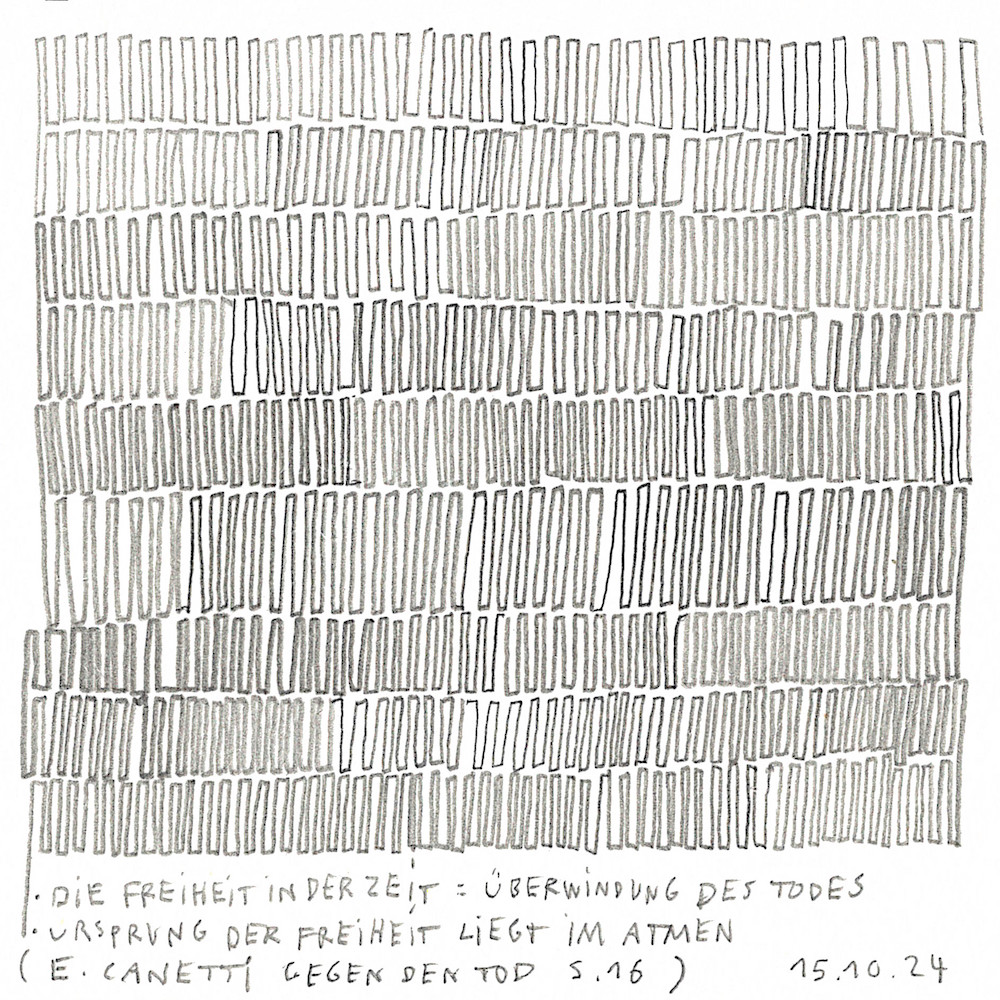 · DIE FREIHEIT IN DER ZEIT = ÜBERWINDUNG DES TODES
· URSPRUNG DER FREIHEIT LIEGT IM ATMEN
( E. CANETTI GEGEN DEN TOD S.16 ) 15.10.24